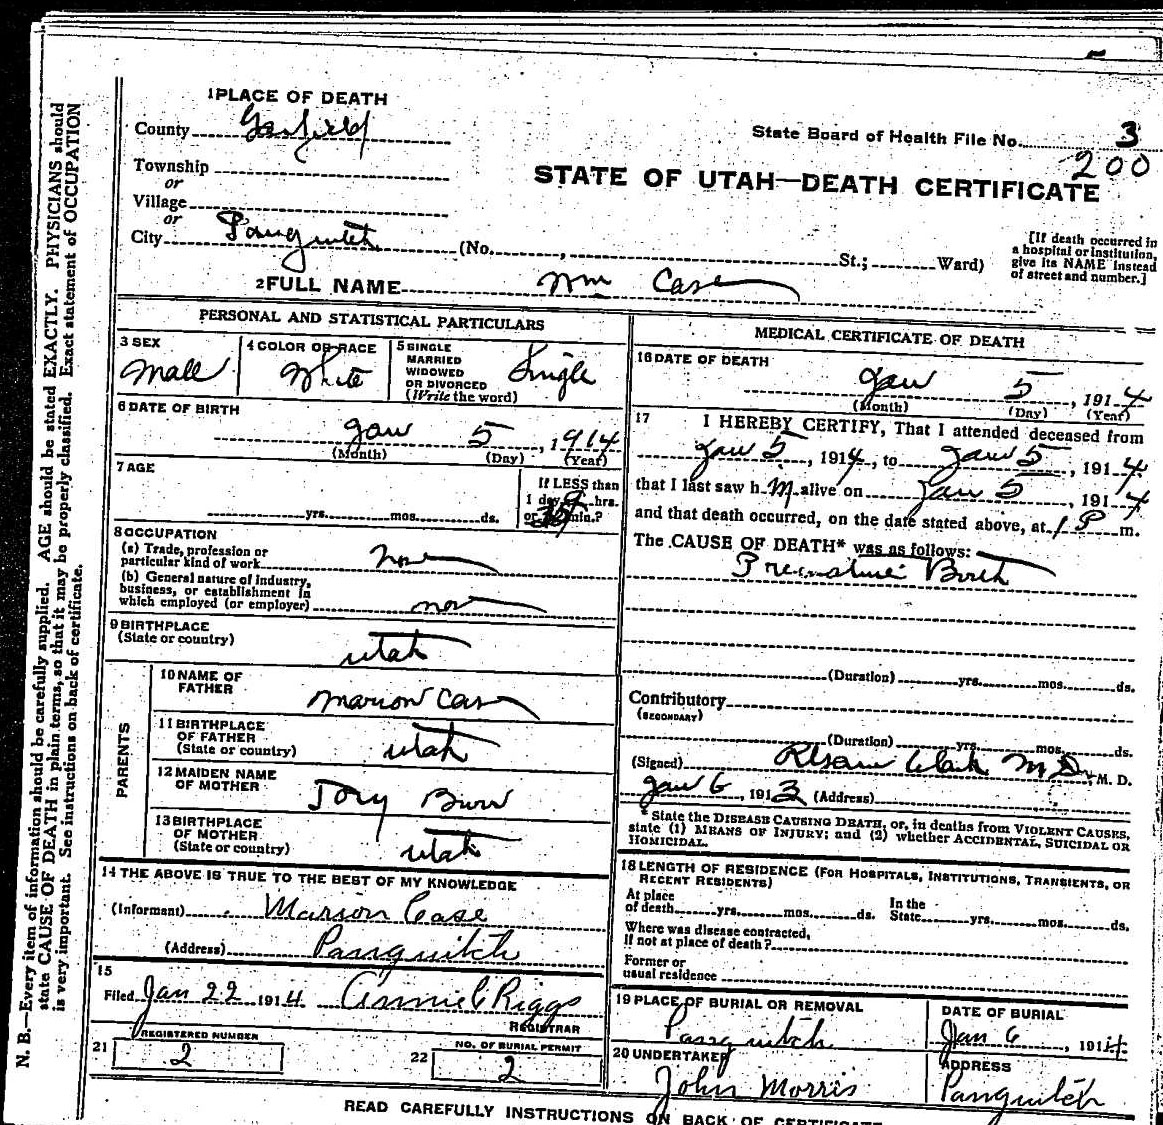 1 PLACE OF DEATH
County Garfield
State Board of Health File No. 3
200
Township
or
Village
or
City Panguitch (No. , St.; Ward)
STATE OF UTAH—DEATH CERTIFICATE
[If death occurred in
a hospital or institution,
give its NAME instead
of street and number.]
2 FULL NAME Wm Case
PERSONAL AND STATISTICAL PARTICULARS
3 SEX
Male
4 COLOR OR RACE
White
5 SINGLE
MARRIED
WIDOWED
OR DIVORCED
(Write the word)
Single
6 DATE OF BIRTH
Jan 5, 1914
(Month) (Day) (Year)
7 AGE
yrs. mos. ds.
If LESS than
1 day hrs.
or min.?
8 OCCUPATION
(a) Trade, profession or
particular kind of work None
(b) General nature of Industry,
business, or establishment in
which employed (or employer) none
9 BIRTHPLACE
(State or country)
Utah
PARENTS
10 NAME OF
FATHER
Marion Case
11 BIRTHPLACE
OF FATHER
(State or country)
Utah
12 MAIDEN NAME
OF MOTHER
Burr
13 BIRTHPLACE
OF MOTHER
(State or country)
Utah
14 THE ABOVE IS TRUE TO THE BEST OF MY KNOWLEDGE
(Informant) Marion Case
(Address) Panguitch
15
Filed Jan 22 1914 Annie C Riggs
REGISTRAR
21 REGISTERED NUMBER
2
22 NO. OF BURIAL PERMIT
2
MEDICAL CERTIFICATE OF DEATH
16 DATE OF DEATH
Jan 5, 1914
(Month) (Day) (Year)
17 I HEREBY CERTIFY, That I attended deceased from
Jan 5, 1914, to Jan 5, 1914
that I last saw h m alive on Jan 5, 1914
and that death occurred, on the date stated above, at 1 P m.
The CAUSE OF DEATH* was as follows:
Premature Birth
(Duration) yrs. mos. ds.
Contributory
(SECONDARY)
(Duration) yrs. mos. ds.
(Signed) Clark M.D., M. D.
Jan 6, 1913 (Address)
* State the DISEASE CAUSING DEATH, or, in deaths from VIOLENT CAUSES,
state (1) MEANS OF INJURY; and (2) whether ACCIDENTAL, SUICIDAL OR
HOMICIDAL.
18 LENGTH OF RESIDENCE (FOR HOSPITALS, INSTITUTIONS, TRANSIENTS, OR
RECENT RESIDENTS)
At place
of death yrs. mos. ds.
In the
State yrs. mos. ds.
Where was disease contracted,
if not at place of death?
Former or
usual residence
19 PLACE OF BURIAL OR REMOVAL
Panguitch
DATE OF BURIAL
Jan 6, 1914
20 UNDERTAKER
John Morris
ADDRESS
Panguitch
READ CAREFULLY INSTRUCTIONS ON BACK OF CERTIFICATE
N. B.—Every item of information should be carefully supplied. AGE should be stated EXACTLY. PHYSICIANS should
state CAUSE OF DEATH in plain terms, so that it may be properly classified. Exact statement of OCCUPATION
is very important. See instructions on back of certificate.